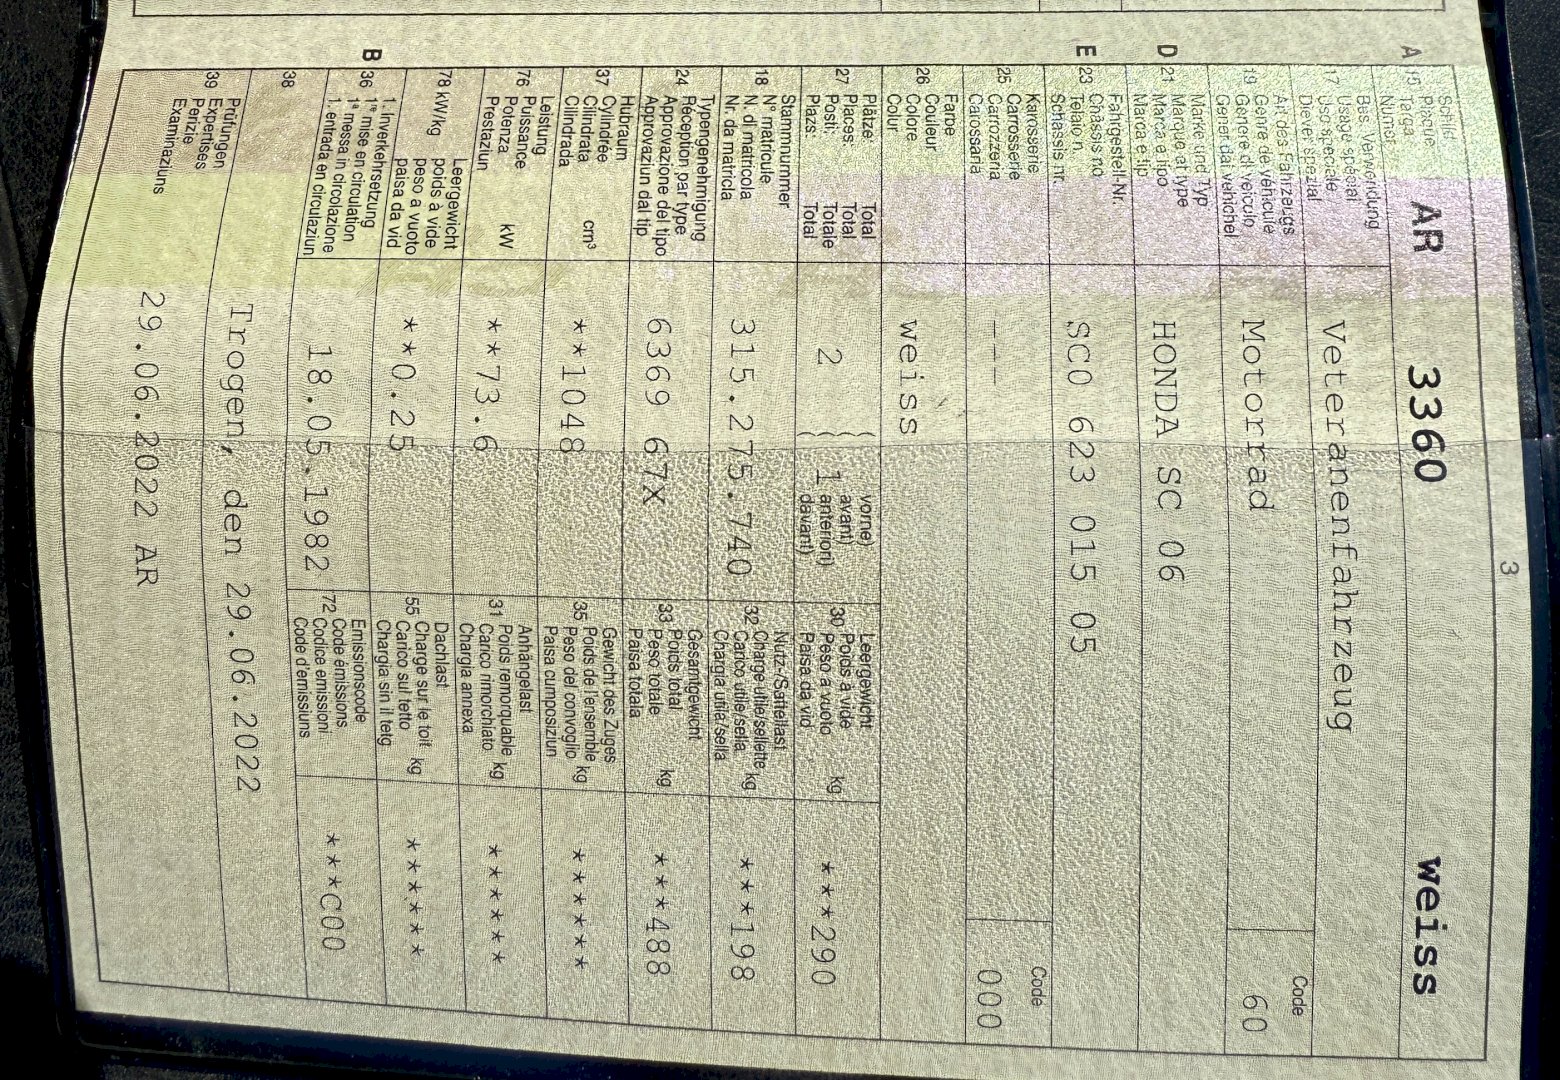 3
A 15 Schild
Plaque
Targa
Numer
AR 3360 weiss
17 Bes. Verwendung
Usage spécial
Uso speciale
Diever spezial
Veteranenfahrzeug
19 Art des Fahrzeugs
Genre de véhicule
Genere di veicolo
Gener dal vehichel
Motorrad
Code
60
D 21 Marke und Typ
Marque et type
Marca e tipo
Marca e tip
HONDA SC 06
E 23 Fahrgestell-Nr.
Châssis no
Telaio n.
Schassis nr.
SC0 623 015 05
25 Karosserie
Carrosserie
Carrozzeria
Carossaria
---
Code
000
26 Farbe
Couleur
Colore
Colur
weiss
27 Plätze: Total
Places: Total
Posti: Totale
Plazs: Total
2 ( 1 vorne)
( avant)
( anteriori)
( davant)
30 Leergewicht
Poids à vide
Peso a vuoto kg
Paisa da vid
***290
18 Stammnummer
N° matricule
N. di matricola
Nr. da matricla
315.275.740
32 Nutz-/Sattellast
Charge utile/sellette kg
Carico utile/sella
Chargia utila/sella
***198
24 Typengenehmigung
Réception par type
Approvazione del tipo
Approvaziun dal tip
6369 67X
33 Gesamtgewicht
Poids total
Peso totale kg
Paisa totala
***488
37 Hubraum
Cylindrée
Cilindrata cm³
Cilindrada
**1048
35 Gewicht des Zuges
Poids de l'ensemble
Peso del convoglio kg
Paisa cumposiziun
******
76 Leistung
Puissance
Potenza kW
Prestaziun
**73.6
31 Anhängelast
Poids remorquable kg
Carico rimorchiato
Chargia annexa
******
78 kW/kg Leergewicht
poids à vide
peso a vuoto
paisa da vid
**0.25
55 Dachlast
Charge sur le toit
Carico sul tetto kg
Chargia sin il tetg
******
B 36 1. Inverkehrsetzung
1re mise en circulation
1a messa in circolazione
1. entrada en circulaziun
18.05.1982
72 Emissionscode
Code émissions
Codice emissioni
Code d'emissiuns
***C00
38
Trogen, den 29.06.2022
39 Prüfungen
Expertises
Perizie
Examinaziuns
29.06.2022 AR